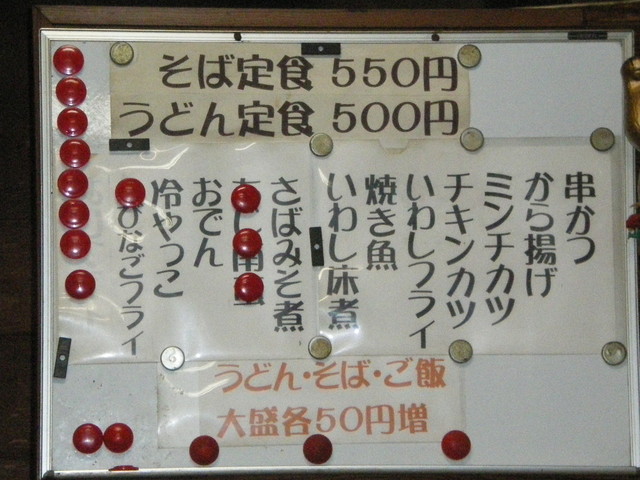 そば定食 550円
うどん定食 500円
串かつ
から揚げ
ミンチカツ
チキンカツ
いわしフライ
焼き魚
いわし床煮
さばみそ煮
おでん
冷やっこ
ひなごフライ
うどん・そば・ご飯
大盛各50円増